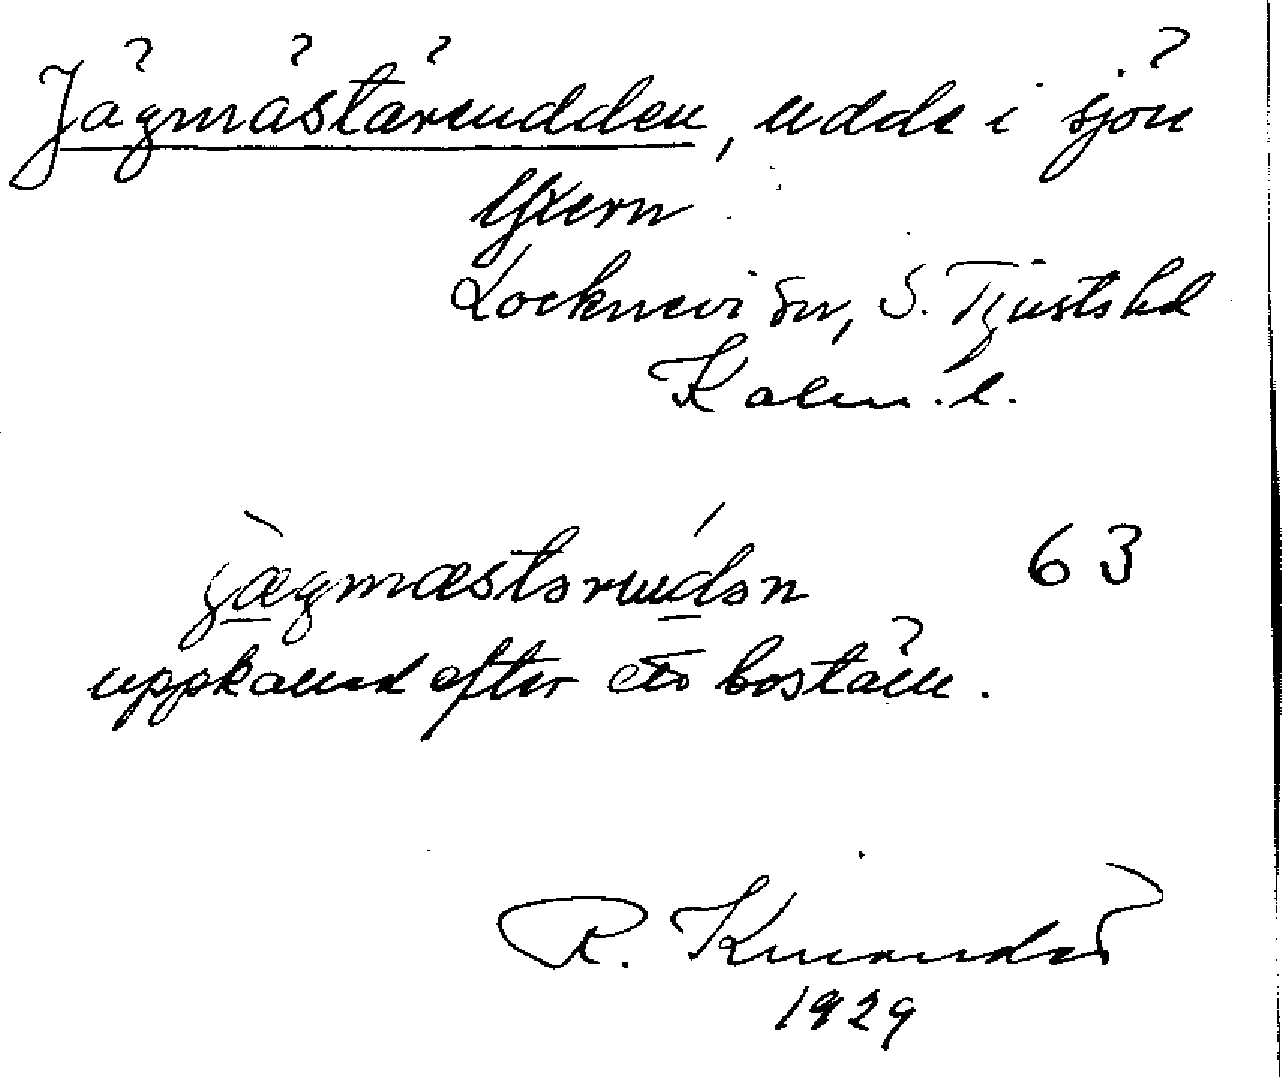 Jägmästäreudden, udde i sjön
Yxern
Locknevi sn, S. Tjusts hd
Kalm. l.
jægmæstəruıdən 63
uppkallad efter ett boställe.
R.
1929